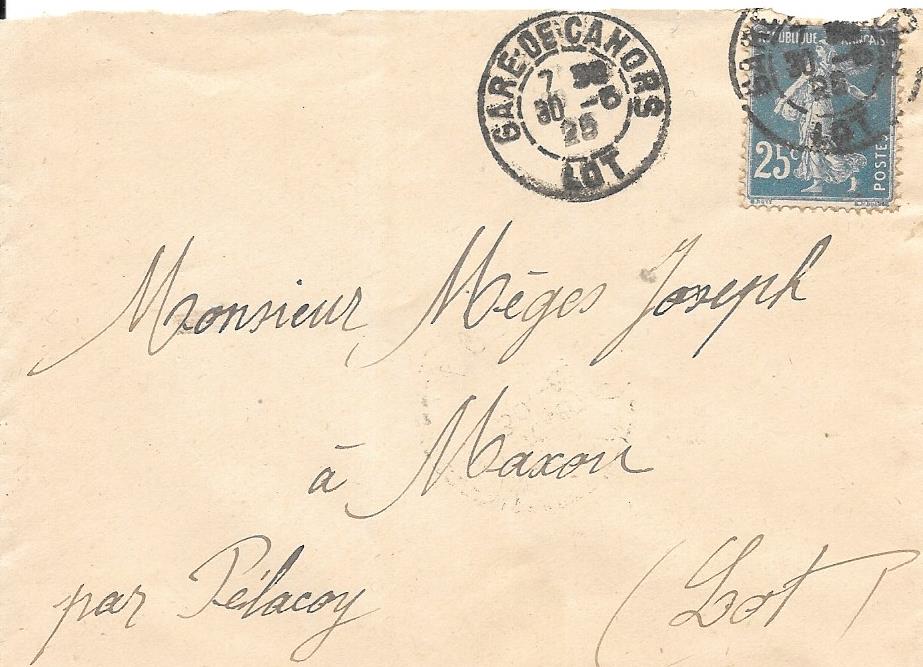 GARE DE CAHORS
7 30
30 -5
25
LOT
REPUBLIQUE FRANÇAISE
30 -5
25
LOT
25c
POSTES
Monsieur Mèges Joseph
à Maxou
par Pélacoy (Lot)